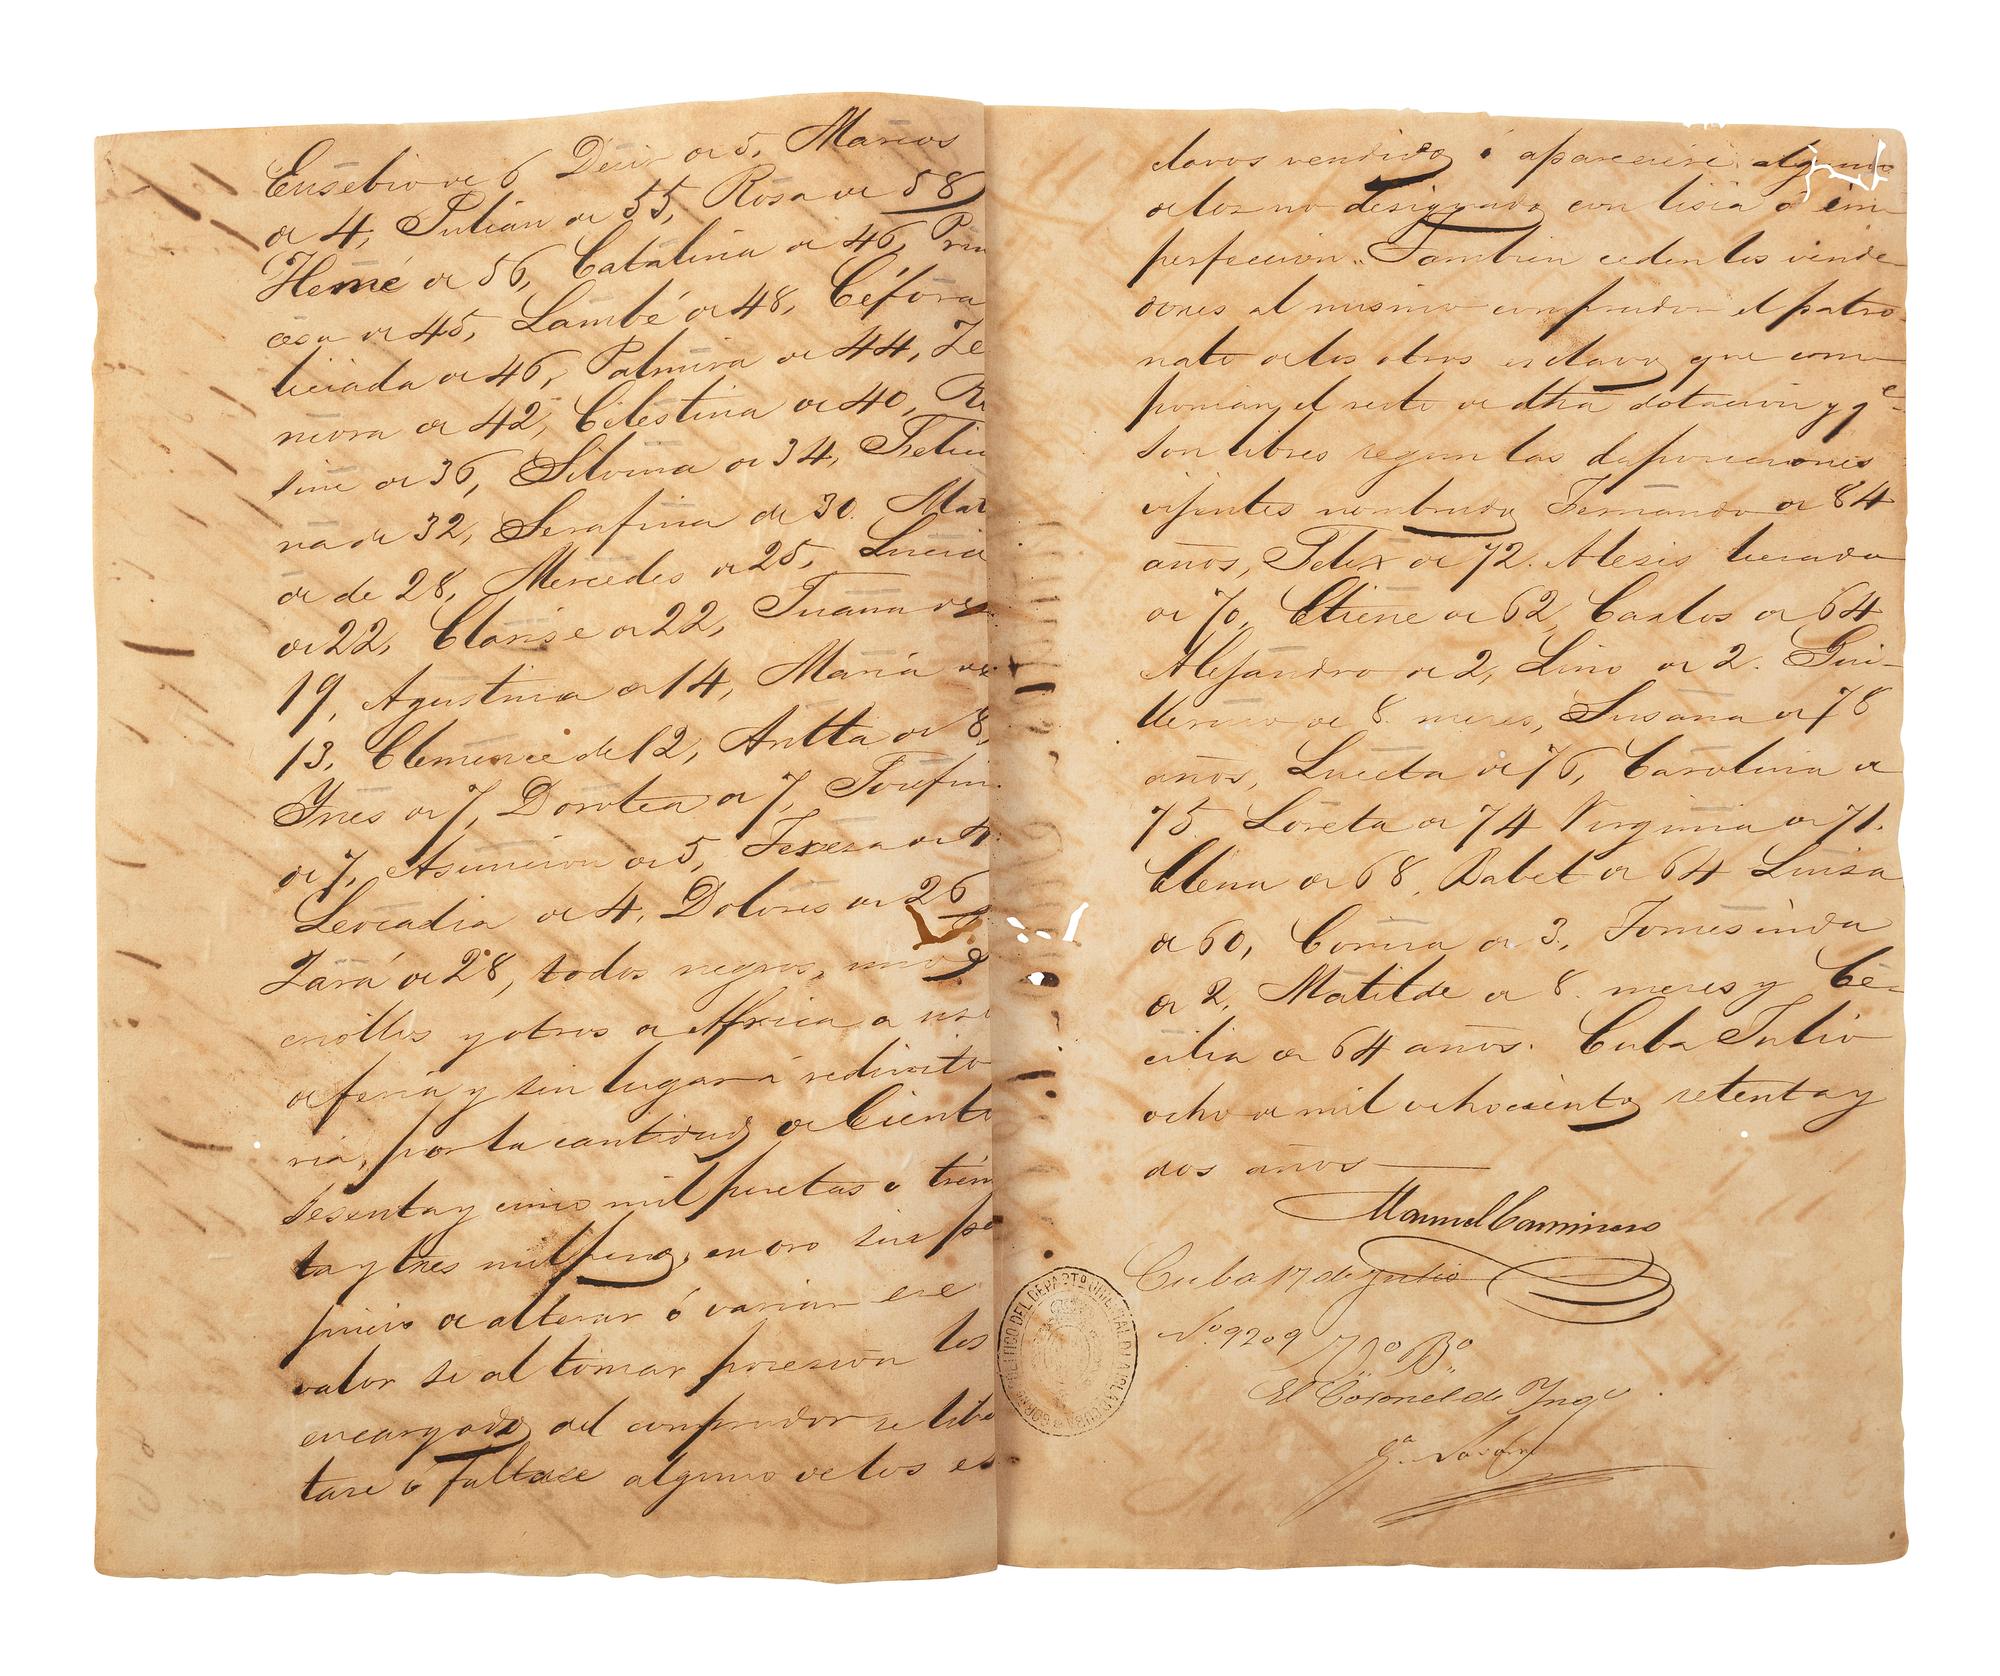 Eusebio de 6 Desir de 5, Marcos
de 4, Julian de 55, Rosa de 58
Hemé de 56, Catalina de 46, Prin
cesa de 45, Lambé de 48, Céfora
liciada de 46, Palmira de 44, Ze
nobra de 42, Celestina de 40, Ro
sine de 36, Silvina de 34, Felici
na de 32, Serafina de 30. Mat
de de 28, Mercedes de 25, Lucia
de 22, Clarise de 22, Juana de
19, Agustina de 14, Maria de
13, Clemencie de 12, Anitta de 8,
Ynes de 7, Dorotea de 7, Josefin
de 7, Asuncion de 5, Teresa de 4
Leocadia de 4, Dolores de 26
Zará de 28, todos negros, unos
criollos y otros de Africa a uso
de feria y sin lugar á redivito
ria, por la cantidad de Ciento
sesenta y cinco mil pesetas o trein
ta y tres mil pesos en oro sin per
juicio de alterar ó variar ese
valor si al tomar posesion los
encargados del comprador se liber
tase ó faltase alguno de los es
clavos vendidos ó apareciere alguno
de los no designados con lisia ó im
perfeccion. Tambien ceden los vende
dores al mismo comprador el patro
nato de los otros esclavos que com
ponian el resto de dha dotacion y qe
son libres segun las disposiciones
vijentes nombrados Fernando de 84
años, Felix de 72. Alexis liciado
de 70, Etiene de 62, Carlos de 64
Alejandro de 2, Lino de 2. Gui-
llermo de 8 meses, Susana de 78
años, Lucila de 76, Carolina de
75 Loreta de 74 Virginia de 71.
Elena de 68. Babet de 64 Luisa
de 60, Corina de 3, Fomesinda
de 2, Matilde de 8 meses y Ce-
cilia de 64 años. Cuba Julio
ocho de mil ochocientos setenta y
dos años
Manuel Caminero
Cuba 17 de Julio
No. 9209 Vo. Bo.
El Coronel de Yng
GOBIERNO POLITICO DEL DEPARTO ORIENTAL DE LA ISLA DE CUBA